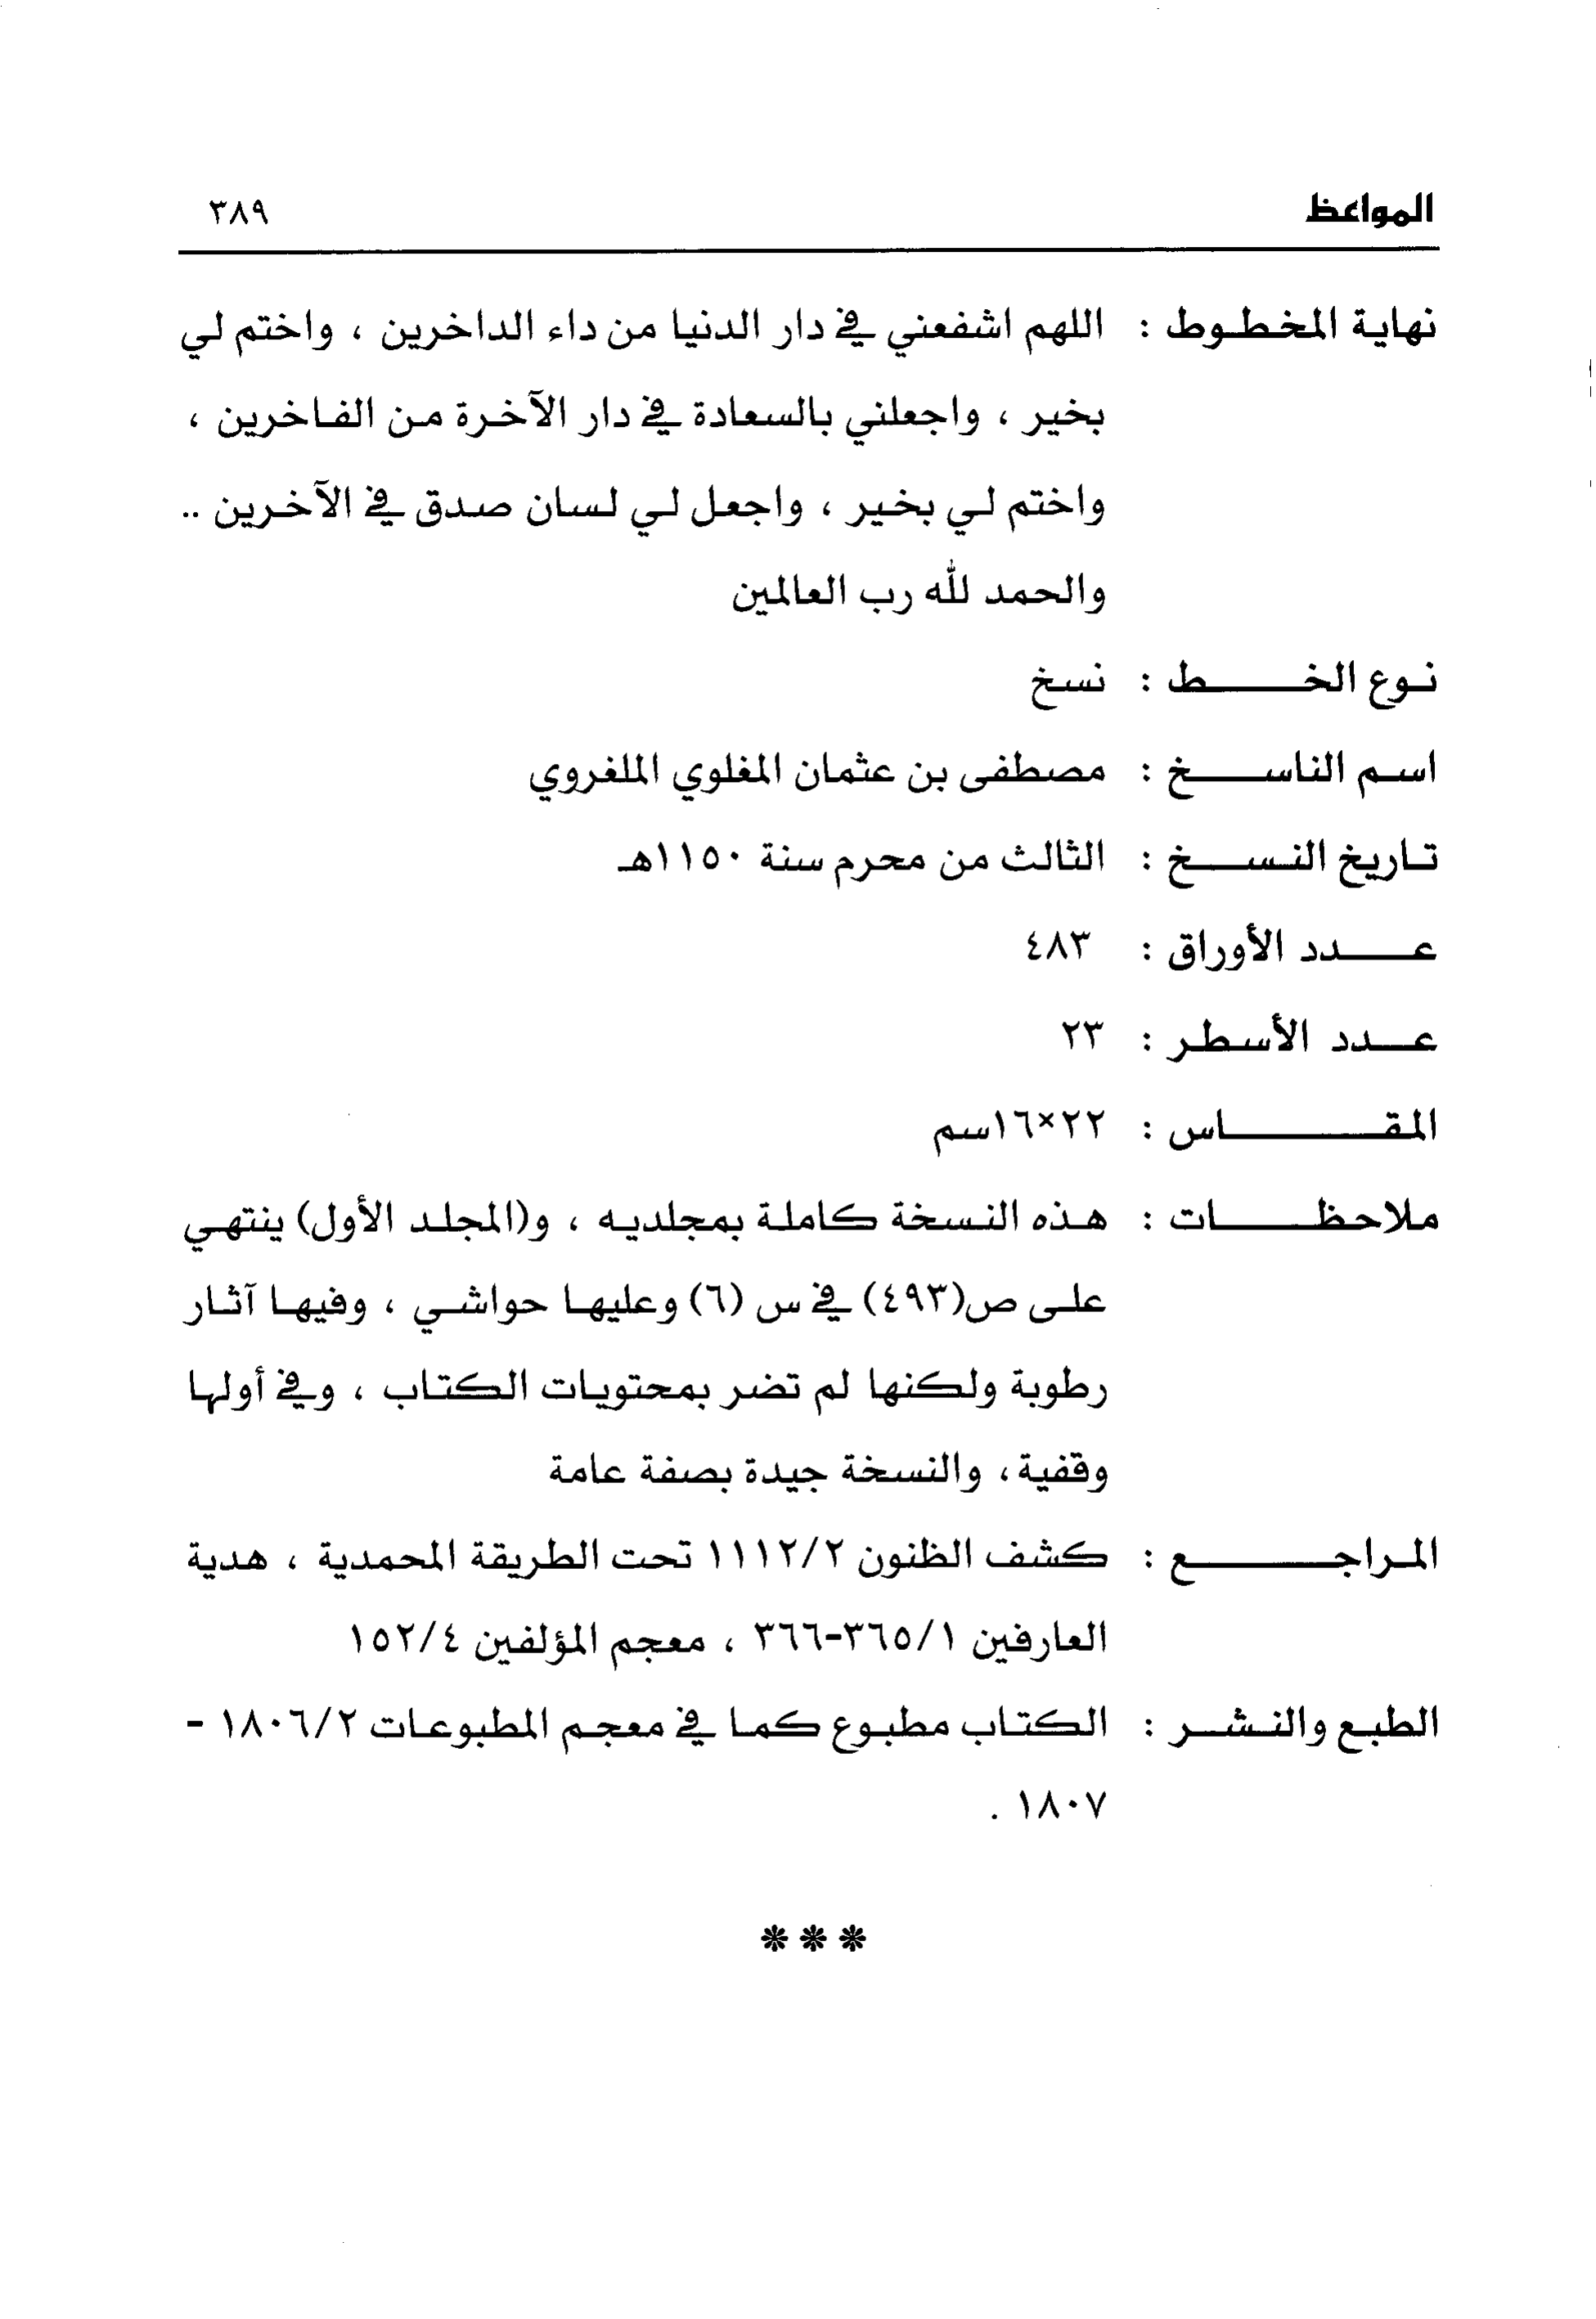 المواعظ ٣٨٩
نهاية المخطوط : اللهم اشفعني في دار الدنيا من داء الداخرين ، واختم لي
بخير ، واجعلني بالسعادة في دار الآخرة من الفاخرين ،
واختم لي بخير ، واجعل لي لسان صدق في الآخرين ..
والحمد لله رب العالمين
نوع الخط : نسخ
اسم الناسخ : مصطفى بن عثمان المغلوي الملغروي
تاريخ النسخ : الثالث من محرم سنة ١١٥٠هـ
عدد الأوراق : ٤٨٣
عدد الأسطر : ٢٣
المقاس : ٢٢×١٦سم
ملاحظات : هذه النسخة كاملة بمجلديه ، و(المجلد الأول) ينتهي
على ص(٤٩٣) في س (٦) وعليها حواشي ، وفيها آثار
رطوبة ولكنها لم تضر بمحتويات الكتاب ، وفي أولها
وقفية ، والنسخة جيدة بصفة عامة
المراجع : كشف الظنون ١١١٢/٢ تحت الطريقة المحمدية ، هدية
العارفين ٣٦٥/١-٣٦٦ ، معجم المؤلفين ١٥٢/٤
الطبع والنشر : الكتاب مطبوع كما في معجم المطبوعات ١٨٠٦/٢ -
١٨٠٧ .
***